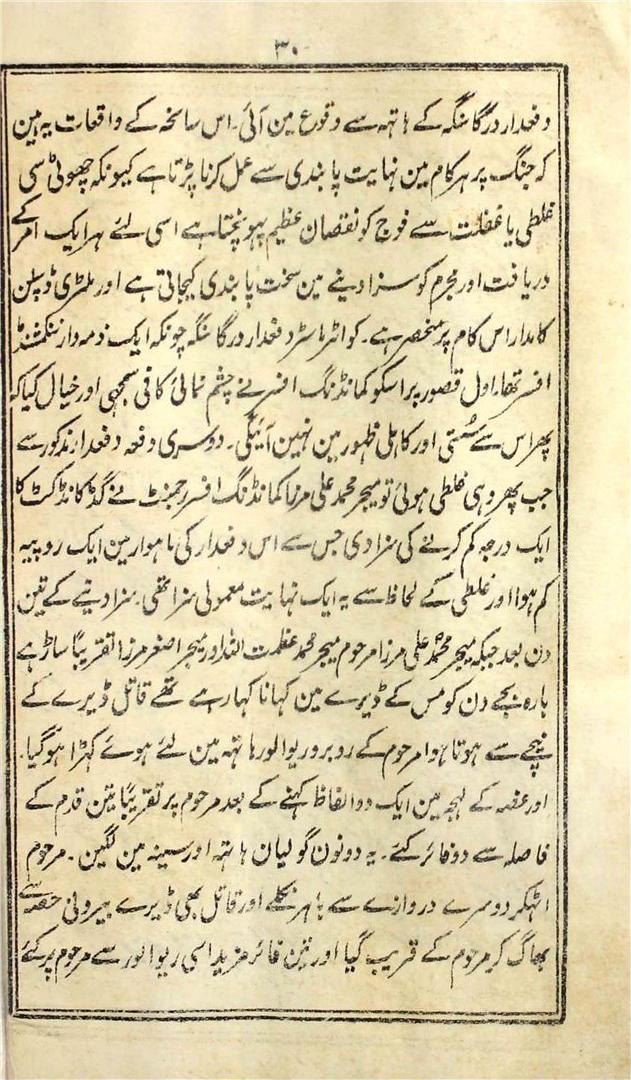 ۳۰
دفعدار درگا سنگہ کے ہاتہہ سے وقوع مین آئی۔ اس سانحہ کے واقعات یہ ہین
کہ جنگ پر ہر کام مین نہایت پابندی سے عمل کرنا پڑتا ہے کیونکہ چھوٹی سی
غلطی یا غفلت سے فوج کو نقصان عظیم پہونچتا ہے اسی لئے ہر ایک امر کے
دریافت اور مجرم کو سزا دینے مین سخت پابندی کیجاتی ہے اور ملٹری ڈسپلن
کا مدار اس کام پر منحصر ہے۔ کواٹر ماسٹر دفعدار درگا سنگہ چونکہ ایک ذمہ دار
افسر تھا۔ اول قصور پر اسکو کمانڈنگ افسر نے چشم نمائی کافی سمجہی اور خیال کیا کہ
پھر اس سے سُستی اور کاہلی ظہور مین نہین آئیگی۔ دوسری دفعہ دفعدار مذکور سے
جب پھر وہی غلطی ہوئی تو میجر محمد علی مرزا کمانڈنگ افسر رجمنٹ نے گڈ کانڈکٹ کا
ایک درجہ کم کرنے کی سزا دی جس سے اس دفعدار کی ماہوار مین ایک روپیہ
کم ہوا اور غلطی کے لحاظ سے یہ ایک نہایت معمولی سزا تھی۔ سزا دینے کے تین
دن بعد جبکہ میجر محمد علی مرزا مرحوم میجر محمد عظمت اللہ اور میجر اصغر مرزا تقریباً ساڑہے
بارہ بجے دن کو مس کے ڈیرے مین کہانا کہا رہے تھے قاتل ڈیرے کے
نیچے سے ہوتا ہوا مرحوم کے روبرو ریوالور ہاتہہ مین لئے ہوئے کہڑا ہو گیا۔
اور غصہ کے لہجہ مین ایک دو الفاظ کہنے کے بعد مرحوم پر تقریباً تین قدم کے
فاصلہ سے دو فائر کئے۔ یہ دونون گولیان ہاتہہ اور سینہ مین لگین۔ مرحوم
اٹہکر دوسرے دروازے سے باہر نکلے اور قاتل بھی ڈیرے بیرونی حصہ سے
بھاگ کر مرحوم کے قریب گیا اور تین فائر مزید اسی ریوالور سے مرحوم پر کئے